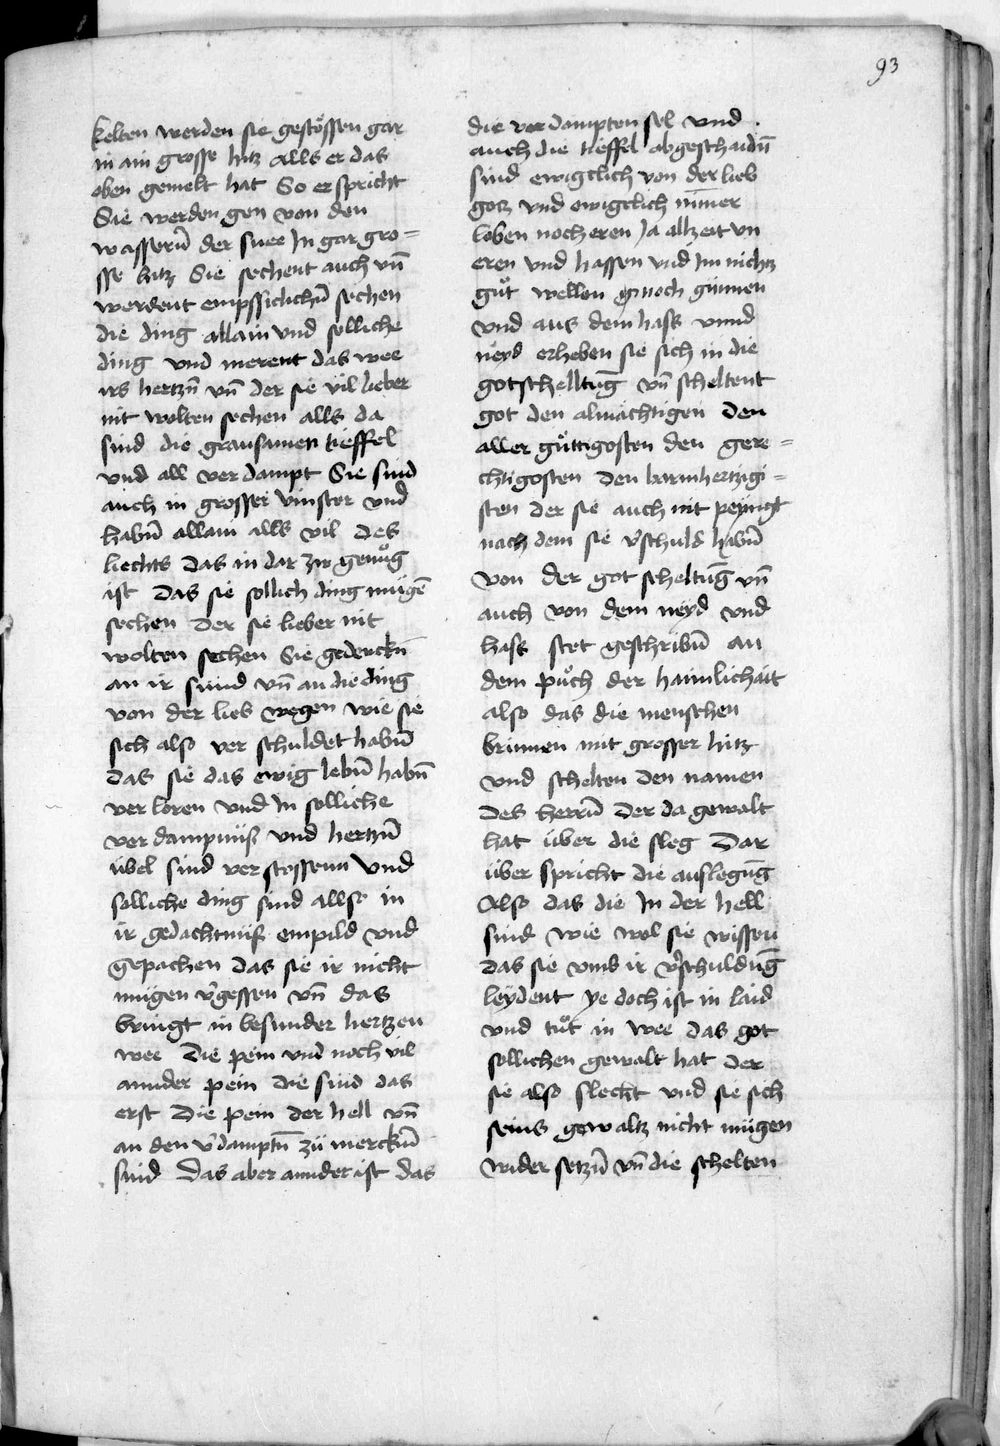 93
kelten werden sie gestössen gar
in ain grosse hitz Alls er das
oben gemelt hat So er spricht
Sie werden gen von den
wasserñ der snee In gar gro=
sse hitz Sie sechent auch vñ
werdent empssichchñ sechen
die ding allain vnd solliche
ding vnd merent das wee
irs hertzñ vñ der sie vil lieber
nit wolten sechen alls da
sind die grausamen tieffel
vnd all ver dampt Sie sind
auch in grosser vinster vnd
habñ allain alls vil des
liechts das in dar zw genůg
ist Das sie sollich ding mügē
sechen Der sie lieber nit
wolten sechen Sie gedenckñ
an ir sünd vñ an die ding
von der lieb wegen wie sie
sich also ver schuldet habñ
das sie das ewig lebñ habñ
ver loren vnd In solliche
ver dampnüß vnd hertzñ
übel sind ver stossenn Vnd
solliche ding sind allso in
ir gedachtnüß empild vnd
gepachen das sie ir nicht
mügen v̄gessen vñ das
bringt in besunder hertzen
wee Die pein vnd noch vil
annder pein die sind das
erst Die pein der hell vñ
an den v̄damptñ zü merckñ
sind Das aber annder ist das
die ver dampten sel vnd
auch die tieffel abgeschaidñ
sind ewigclich von der lieb
gotz vnd ewigclich nimer
loben noch eren Ja allzeit vn
eren vnd hassen vnd Im nichtz
gůt wellen noch günnen
vnd aus dem hass vnnd
neyd erheben sie sich in die
gotschelltūg vñ scheltent
got den almächtigen Den
aller gůttigosten den gere=
chtigosten Den barmhertzigi=
sten der sie auch nit peyngt
nach dem sie v̄schuld habñ
Von der got scheltūg vñ
auch von dem neyd vnd
hass stet geschribñ an
dem půch der haimlichait
also das die menschen
brinnen mit grosser hitz
vnd schelten den namen
des herrñ Der da gewalt
hat über die sleg Dar
über spricht die auslegūg
Also das die In der hell
sind wie wol sie wissen
das sie vmb ir v̄schuldūg
leydent ye doch ist in laid
vnd tůt in wee das got
sollichen gewalt hat der
sie also slecht vnd sie sich
seins gewaltz nicht mügen
wider setzñ vñ die schelten